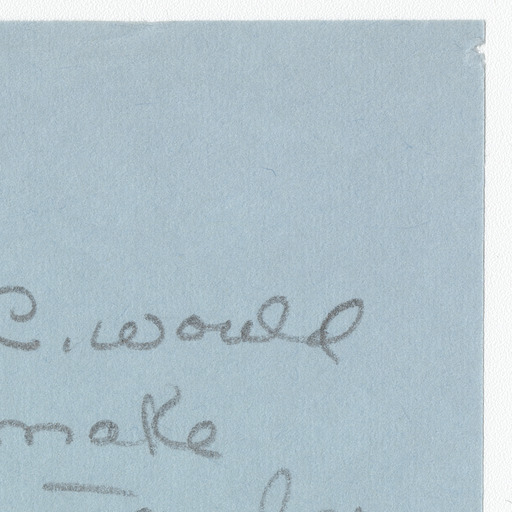 C. would
make